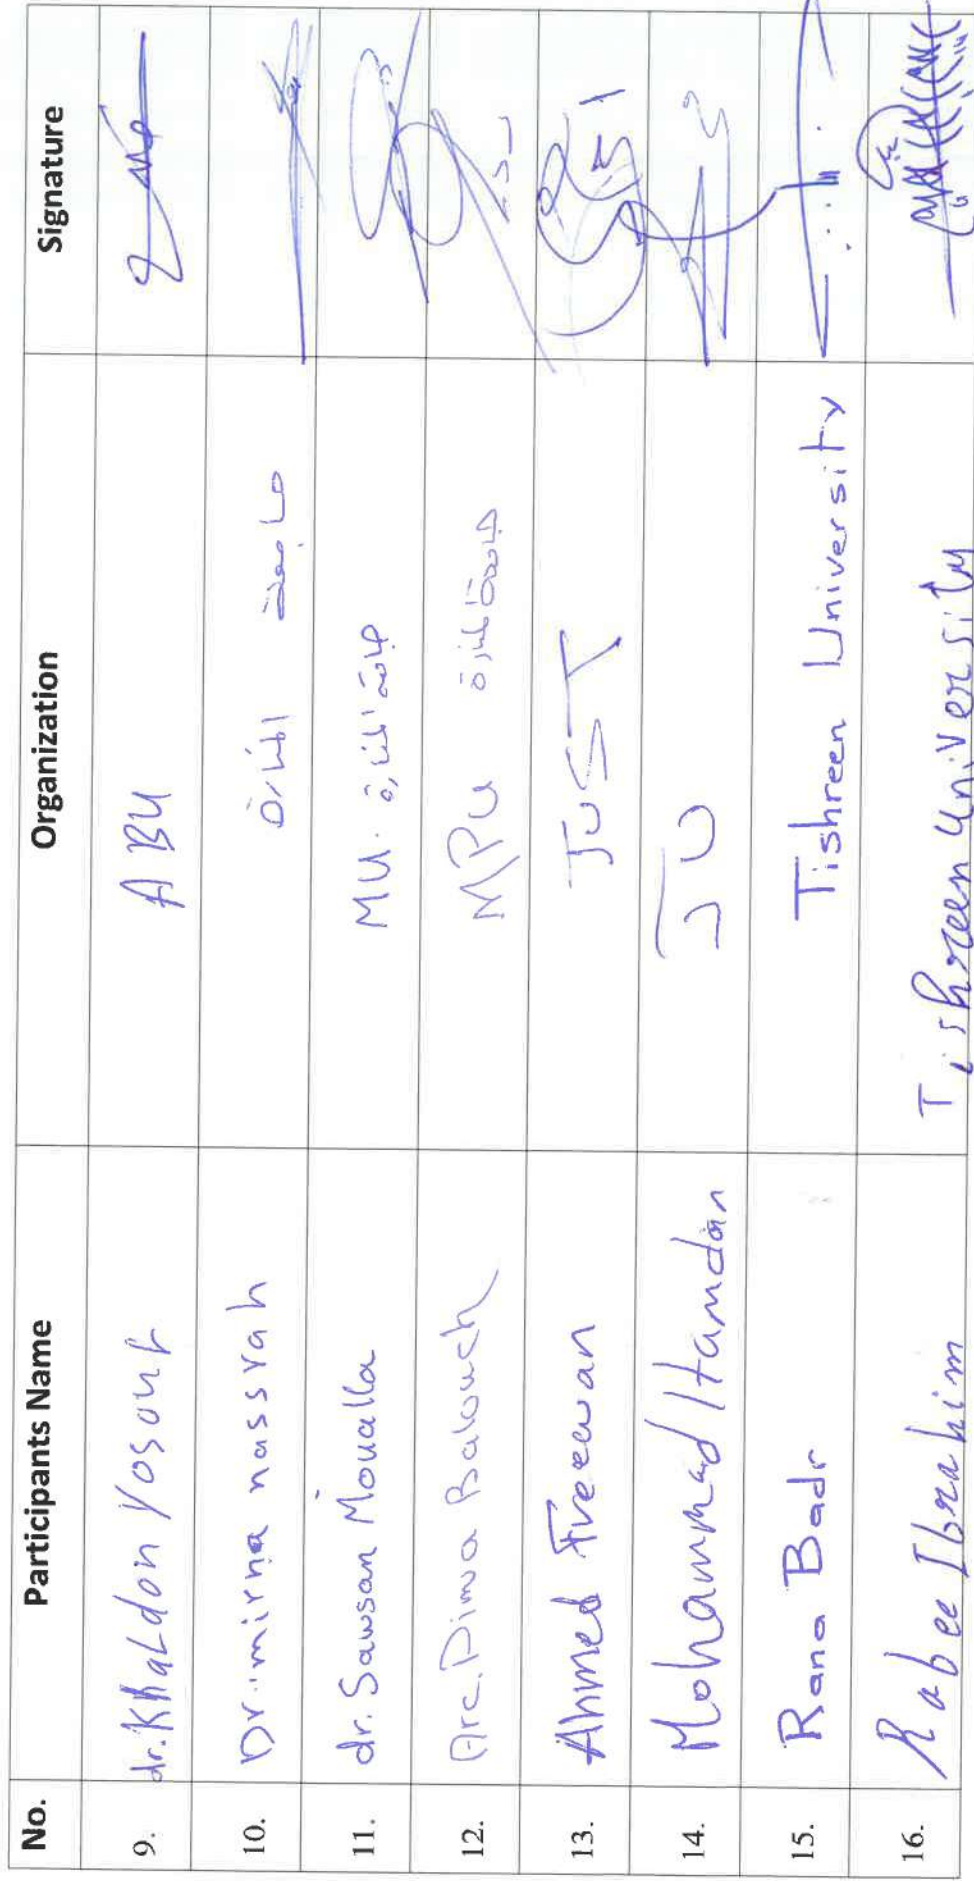 No. Participants Name Organization Signature
9. dr. Khaldon Yosouf ABU
10. Dr. mirna nassrah جامعة المنارة
11. dr. Sawsan Moualla MU. جامعة المنارة
12. Arc. Dima Balouch MPU جامعة المنارة
13. Ahmed Freewan JUST
14. Mohammad Hamdan JU
15. Rana Badr Tishreen University
16. Rabee Ibrahim Tishreen University